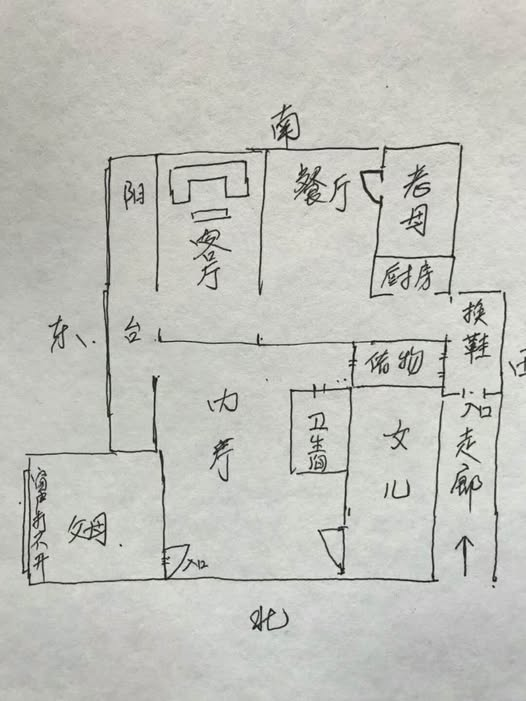 南
阳
台
客厅
餐厅
老母
厨房
换鞋
东
储物
内厅
卫生间
女儿
入口
走廊
窗打不开
父母
入口
北